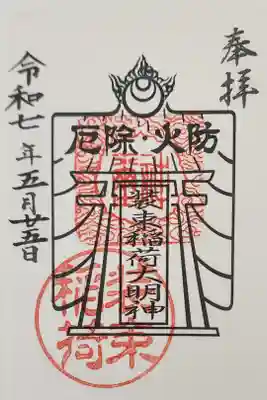 奉拝
厄除・火防
裝束稲荷大明神
裝束
稲荷
令和七年五月廿五日